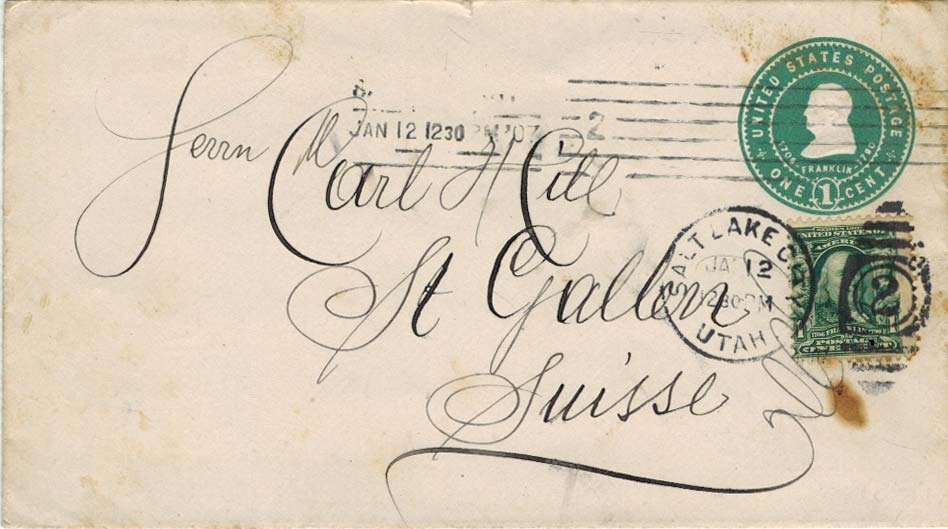 UNITED STATES POSTAGE
1706 1790
FRANKLIN
ONE 1 CENT
JAN 12 1230 PM '07
2
Herrn Carl H Cill
St Gallen
Suisse
SALT LAKE CITY
JAN 12
1230 PM
UTAH
2
UNITED STATES OF
AMERICA
1 1
FRANKLIN
POSTAGE
ONE CENT